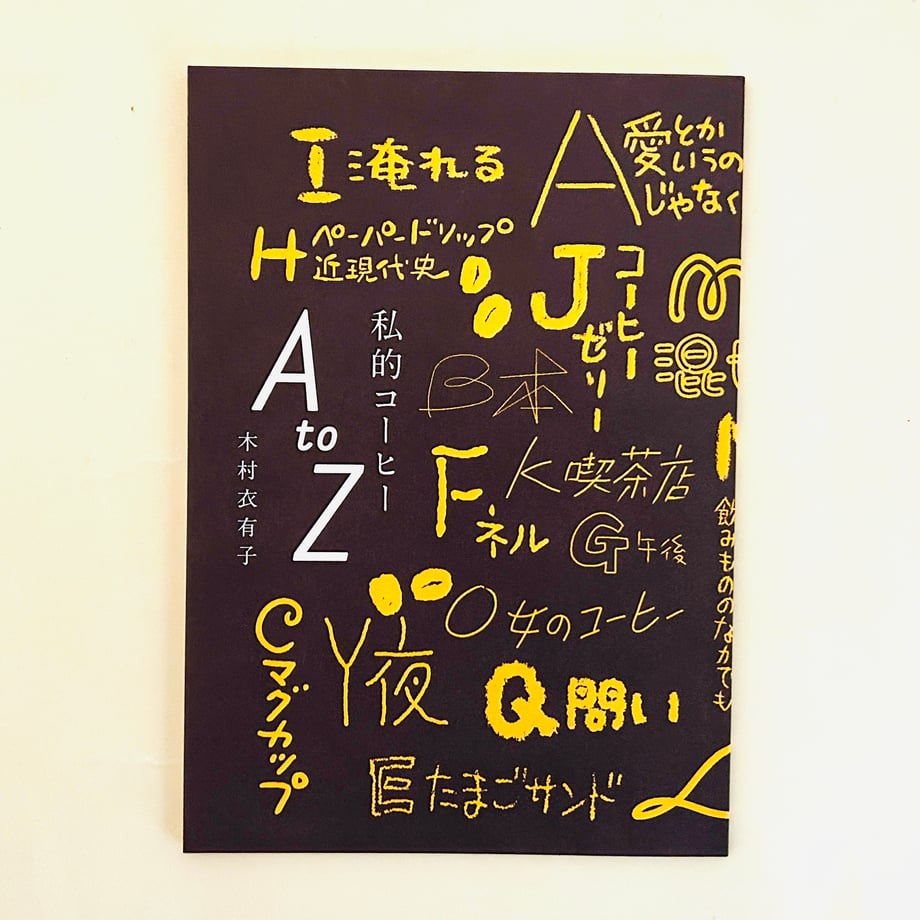 I 淹れる
A 愛とか
いうの
じゃなく
H ペーパードリップ
近現代史
J コーヒー
ゼリー
M
混
私的コーヒー
A
to
Z
木村衣有子
B 本
F ネル
K 喫茶店
G 午後
飲みもののなかでも
O 女のコーヒー
C マグカップ
Y 夜
Q 問い
E たまごサンド
L